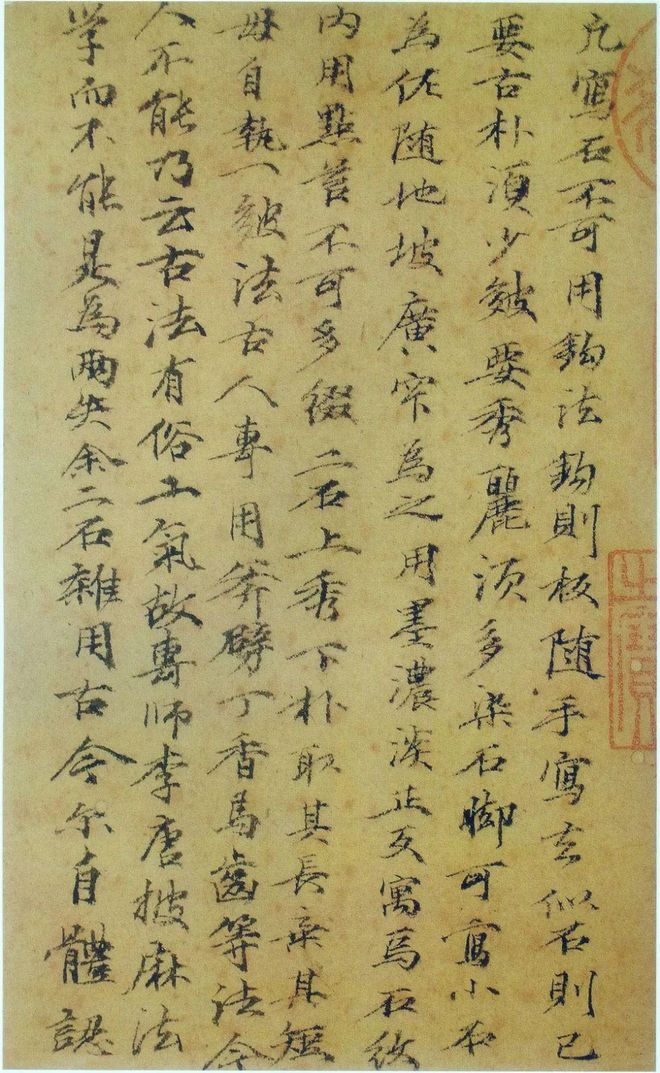 凡寫石不可用鈎法鈎則板随手寫去似石則已
要古朴須少皴要秀麗須多染石脚可寫小石
為佐随地坡廣窄為之用墨濃淡正反寓焉石紋
内用點苔不可多綴二石上秀下朴取其長棄其短
毋自執一皴法古人專用斧劈丁香馬齒等法今
人不能乃云古法有俗工氣故專師李唐披麻法
学而不能是為兩失余二石雜用古今尔自體認